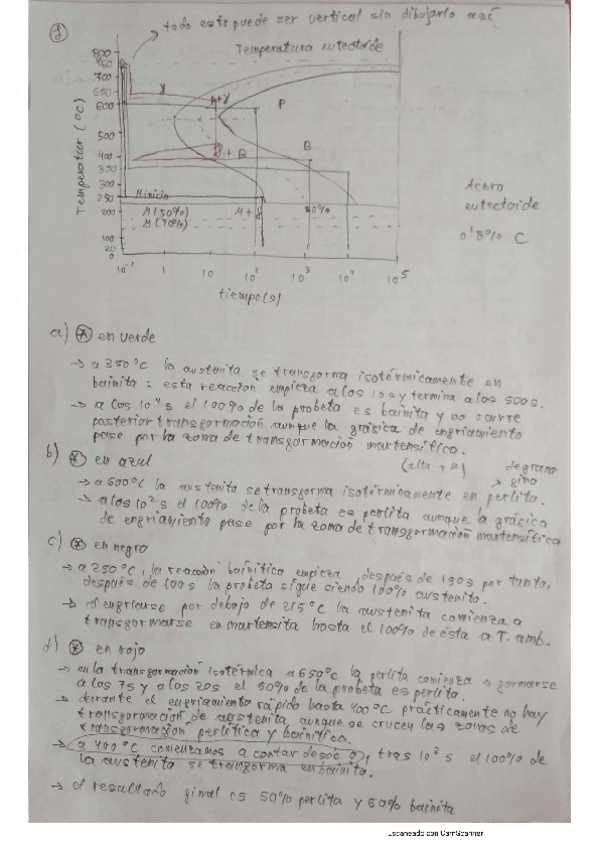 todo esto puede ser vertical sin dibujarlo así
Temperatura eutectoide
Temperatur (°C)
800
700
650
600
500
400
350
300
250
200
100
20
0
γ
P+γ
P
γ+B
B
Minicio
M(50%)
M(90%)
M+γ
50%
10⁻¹ 1 10 10² 10³ 10⁴ 10⁵
tiempo(s)
Acero
eutectoide
0'8% C
a) en verde
→ a 350°C la austenita se transforma isotérmicamente en
bainita: esta reacción empieza a los 10s y termina a los 500s.
→ a los 10⁴s el 100% de la probeta es bainita y no ocurre
posterior transformación aunque la gráfica de enfriamiento
pase por la zona de transformación martensítica.
b) en azul
de grano
fino
→ a 600°C la austenita se transforma isotérmicamente en perlita.
→ a los 10² s el 100% de la probeta es perlita aunque la gráfica
de enfriamiento pase por la zona de transformación martensítica
c) en negro
→ a 250°C, la reacción bainítica empieza después de 150s por tanto,
después de 100s la probeta sigue siendo 100% austenito.
→ al enfriarse por debajo de 215°C la austenita comienza a
transformarse en martensita hasta el 100% de ésta a T. amb.
d) en rojo
→ en la transformación isotérmica a 650°C la perlita comienza a formarse
a los 7s y a los 20s el 50% de la probeta es perlita.
→ durante el enfriamiento rápido hasta 400°C prácticamente no hay
transformación de austenita, aunque se crucen las zonas de
transformación perlítica y bainítica.
→ a 400°C comenzamos a contar desde 0, tras 10² s el 100% de
la austenita se transforma en bainita.
→ el resultado final es 50% perlita y 50% bainita
Escaneado con CamScanner